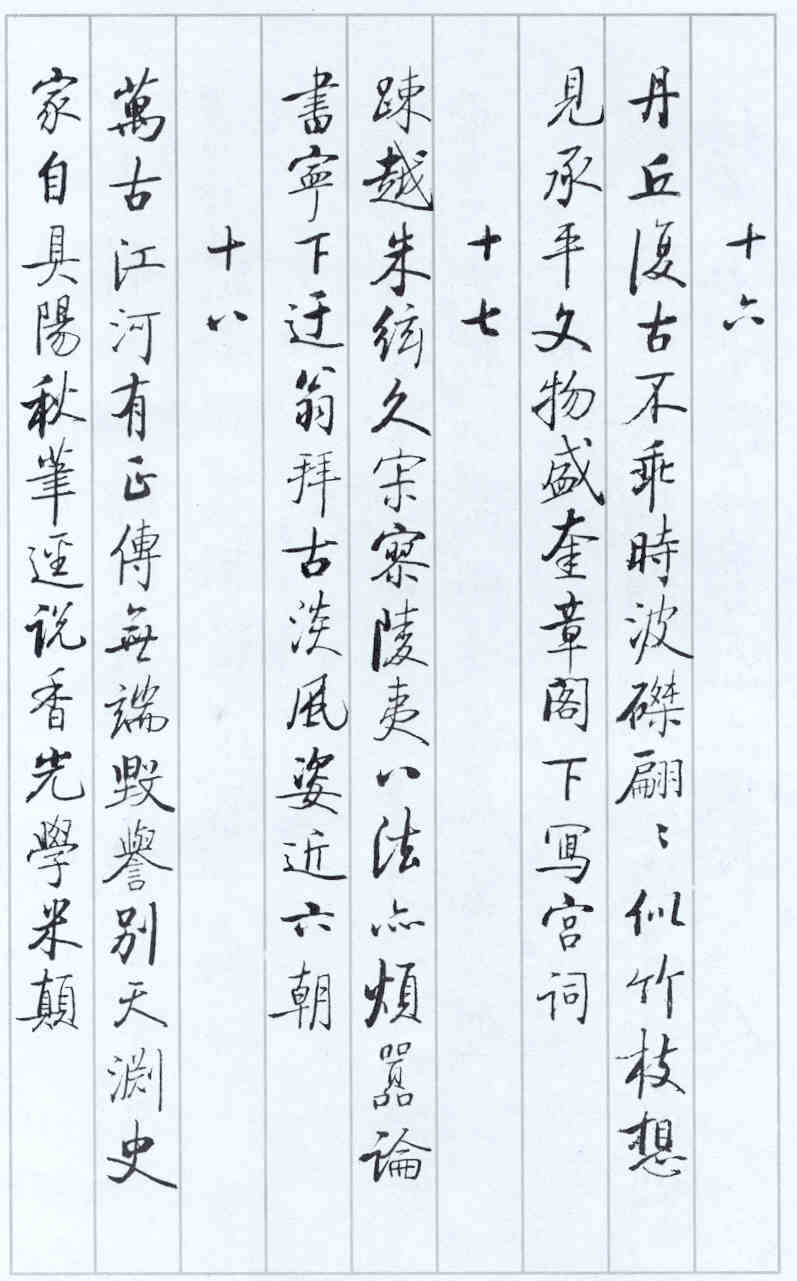 十六
丹丘復古不乖時波磔翩〻似竹枝想
見承平文物盛奎章閣下寫宫词
十七
疎越朱絃久寂寥陵夷八法亦煩囂論
書寧下迂翁拜古淡風姿近六朝
十八
萬古江河有正傳無端毀譽别天淵史
家自具陽秋筆逕说香光學米顛